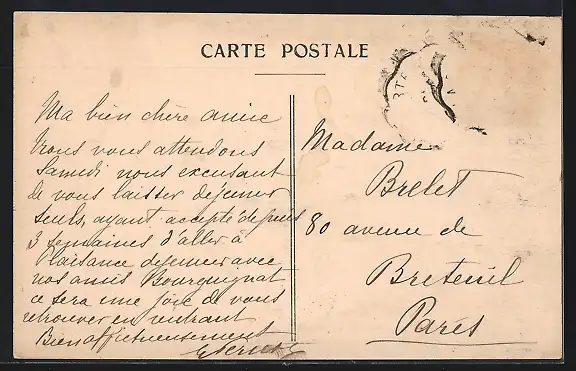 CARTE POSTALE
Ma bien chère amie
Nous vous attendons
Samedi nous excusant
de vous laisser déjeuner
seuls, ayant accepté depuis
3 semaines d'aller à
Plaisance déjeuner avec
nos amis Bourguignat
ce sera une joie de vous
retrouver en rentrant
Bien affectueusement
Madame
Brelet
80 avenue de
Breteuil
Paris